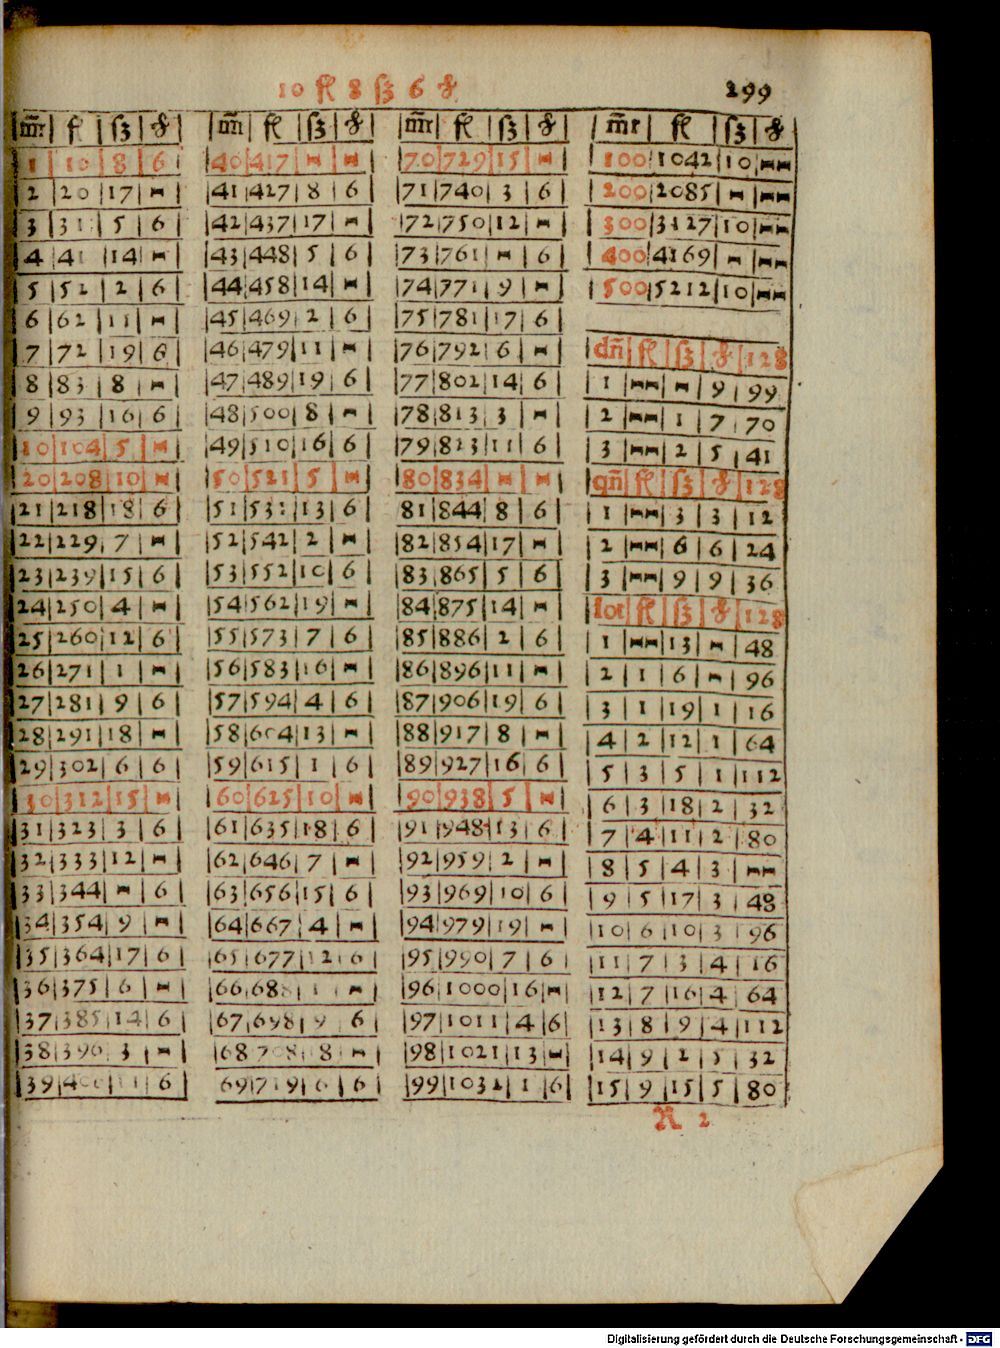 10 fl 8 ß 6 ₰
299
m̄r | fl | ß | ₰
1 | 10 | 8 | 6
2 | 20 | 17 | —
3 | 31 | 5 | 6
4 | 41 | 14 | —
5 | 52 | 2 | 6
6 | 62 | 11 | —
7 | 72 | 19 | 6
8 | 83 | 8 | —
9 | 93 | 16 | 6
10 | 104 | 5 | —
20 | 208 | 10 | —
21 | 218 | 18 | 6
22 | 229 | 7 | —
23 | 239 | 15 | 6
24 | 250 | 4 | —
25 | 260 | 12 | 6
26 | 271 | 1 | —
27 | 281 | 9 | 6
28 | 291 | 18 | —
29 | 302 | 6 | 6
30 | 312 | 15 | —
31 | 323 | 3 | 6
32 | 333 | 12 | —
33 | 344 | — | 6
34 | 354 | 9 | —
35 | 364 | 17 | 6
36 | 375 | 6 | —
37 | 385 | 14 | 6
38 | 396 | 3 | —
39 | 406 | 11 | 6
m̄r | fl | ß | ₰
40 | 417 | — | —
41 | 427 | 8 | 6
42 | 437 | 17 | —
43 | 448 | 5 | 6
44 | 458 | 14 | —
45 | 469 | 2 | 6
46 | 479 | 11 | —
47 | 489 | 19 | 6
48 | 500 | 8 | —
49 | 510 | 16 | 6
50 | 521 | 5 | —
51 | 531 | 13 | 6
52 | 542 | 2 | —
53 | 552 | 10 | 6
54 | 562 | 19 | —
55 | 573 | 7 | 6
56 | 583 | 16 | —
57 | 594 | 4 | 6
58 | 604 | 13 | —
59 | 615 | 1 | 6
60 | 625 | 10 | —
61 | 635 | 18 | 6
62 | 646 | 7 | —
63 | 656 | 15 | 6
64 | 667 | 4 | —
65 | 677 | 12 | 6
66 | 688 | 1 | —
67 | 698 | 9 | 6
68 | 708 | 8 | —
69 | 719 | 6 | 6
m̄r | fl | ß | ₰
70 | 729 | 15 | —
71 | 740 | 3 | 6
72 | 750 | 12 | —
73 | 761 | — | 6
74 | 771 | 9 | —
75 | 781 | 17 | 6
76 | 792 | 6 | —
77 | 802 | 14 | 6
78 | 813 | 3 | —
79 | 823 | 11 | 6
80 | 834 | — | —
81 | 844 | 8 | 6
82 | 854 | 17 | —
83 | 865 | 5 | 6
84 | 875 | 14 | —
85 | 886 | 2 | 6
86 | 896 | 11 | —
87 | 906 | 19 | 6
88 | 917 | 8 | —
89 | 927 | 16 | 6
90 | 938 | 5 | —
91 | 948 | 13 | 6
92 | 959 | 2 | —
93 | 969 | 10 | 6
94 | 979 | 19 | —
95 | 990 | 7 | 6
96 | 1000 | 16 | —
97 | 1011 | 4 | 6
98 | 1021 | 13 | —
99 | 1032 | 1 | 6
m̄r | fl | ß | ₰
100 | 1042 | 10 | —
200 | 2085 | — | —
300 | 3127 | 10 | —
400 | 4169 | — | —
500 | 5212 | 10 | —
dn̄ | fl | ß | ₰ | 128
1 | — | — | 9 | 99
2 | — | 1 | 7 | 70
3 | — | 2 | 5 | 41
qn̄ | fl | ß | ₰ | 128
1 | — | 3 | 3 | 12
2 | — | 6 | 6 | 24
3 | — | 9 | 9 | 36
lot | fl | ß | ₰ | 128
1 | — | 13 | — | 48
2 | 1 | 6 | — | 96
3 | 1 | 19 | 1 | 16
4 | 2 | 12 | 1 | 64
5 | 3 | 5 | 1 | 112
6 | 3 | 18 | 2 | 32
7 | 4 | 11 | 2 | 80
8 | 5 | 4 | 3 | —
9 | 5 | 17 | 3 | 48
10 | 6 | 10 | 3 | 96
11 | 7 | 3 | 4 | 16
12 | 7 | 16 | 4 | 64
13 | 8 | 9 | 4 | 112
14 | 9 | 2 | 5 | 32
15 | 9 | 15 | 5 | 80
2
Digitalisierung gefördert durch die Deutsche Forschungsgemeinschaft - DFG